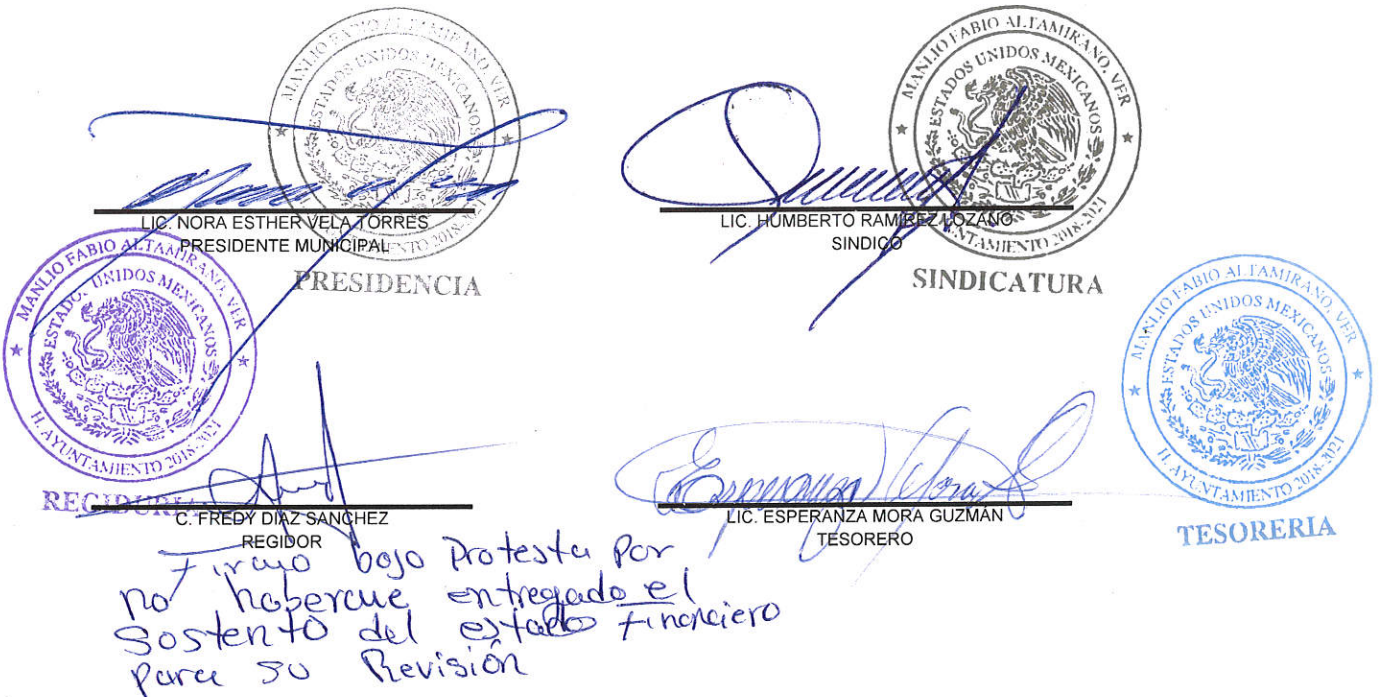 MANLIO FABIO ALTAMIRANO, VER
ESTADOS UNIDOS MEXICANOS
H. AYUNTAMIENTO 2018-2021
PRESIDENCIA
LIC. NORA ESTHER VELA TORRES
PRESIDENTE MUNICIPAL
MANLIO FABIO ALTAMIRANO, VER
ESTADOS UNIDOS MEXICANOS
H. AYUNTAMIENTO 2018-2021
SINDICATURA
LIC. HUMBERTO RAMIREZ LOZANO
SINDICO
MANLIO FABIO ALTAMIRANO, VER
ESTADOS UNIDOS MEXICANOS
H. AYUNTAMIENTO 2018-2021
REGIDURIA
C. FREDY DIAZ SANCHEZ
REGIDOR
Esperanza Mora G
LIC. ESPERANZA MORA GUZMÁN
TESORERO
MANLIO FABIO ALTAMIRANO, VER
ESTADOS UNIDOS MEXICANOS
H. AYUNTAMIENTO 2018-2021
TESORERIA
Firmo bajo Protesta Por
no haberme entregado el
Sostento del estado Financiero
para su Revisión